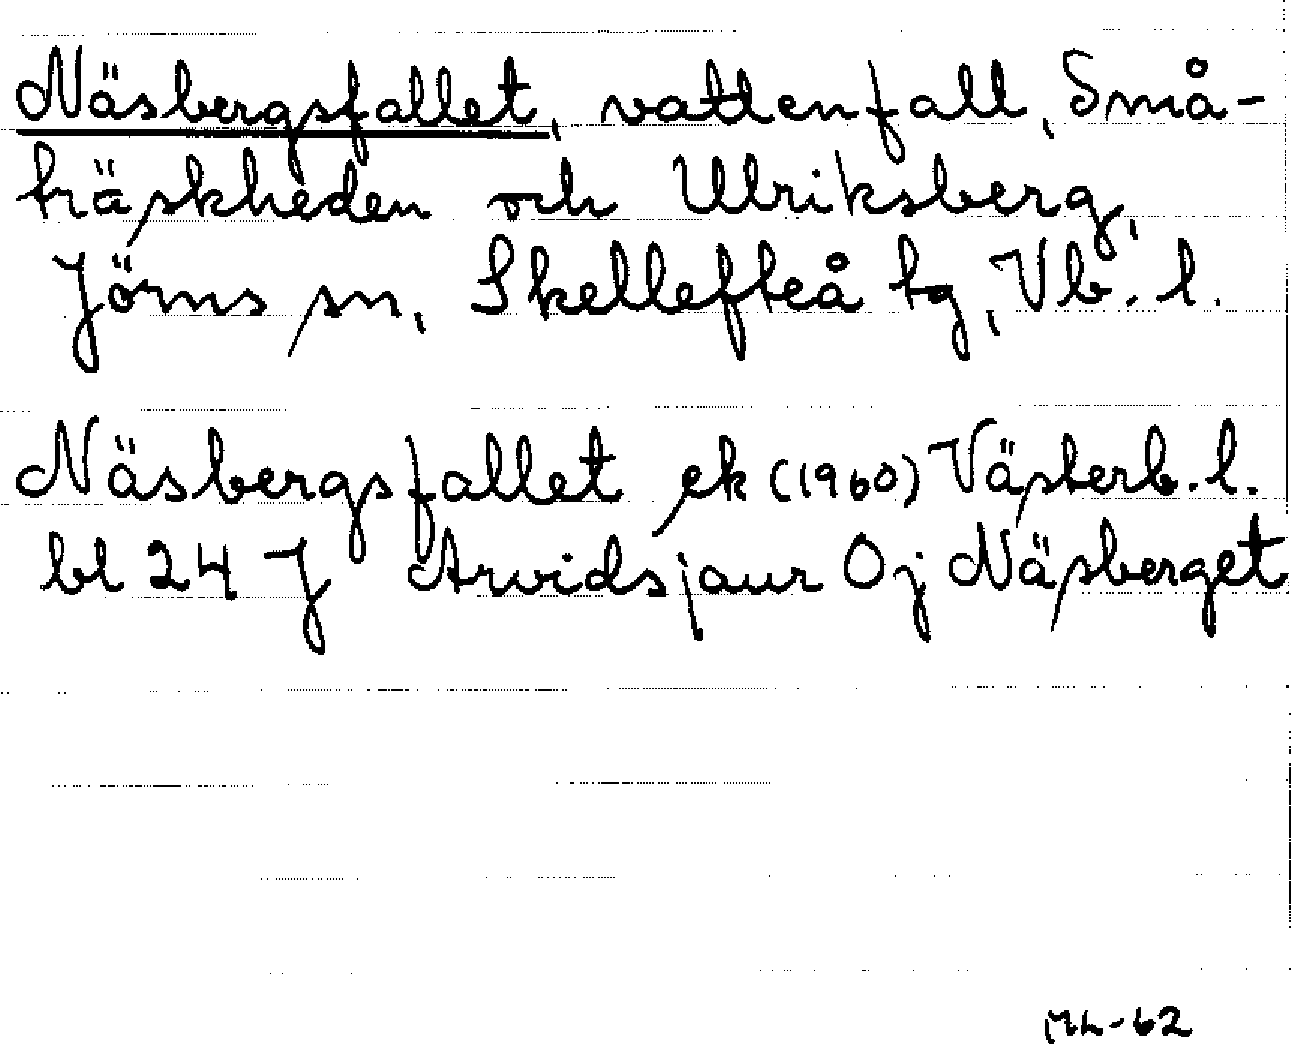 Näsbergsfallet, vattenfall, Små-
träskheden och Ulriksberg,
Jörns sn, Skellefteå tg, Vb. l.
Näsbergsfallet ek (1960) Västerb. l.
bl 24 J Arvidsjaur Oj Näsberget
ML-62